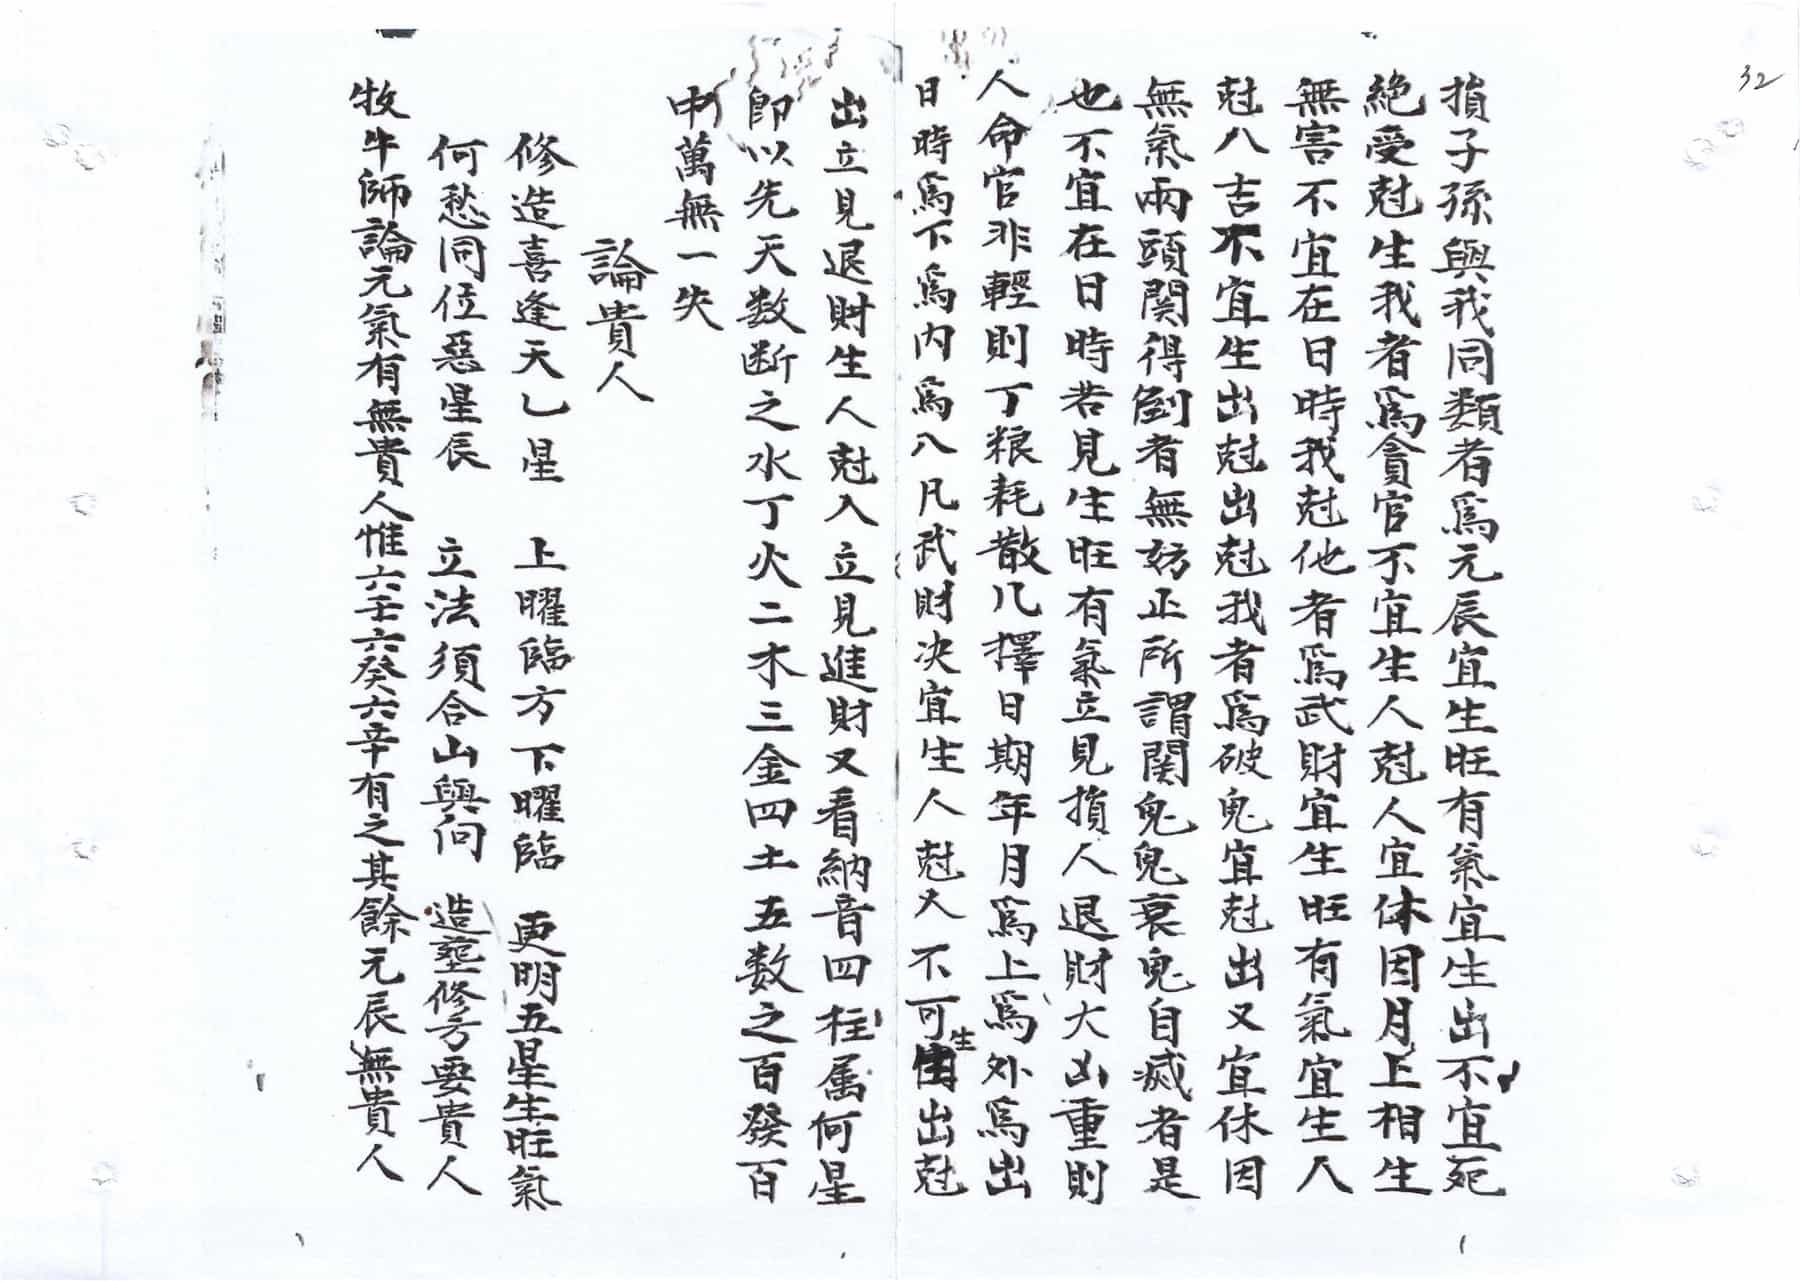 32
損子孫與我同類者爲元辰宜生旺有氣宜生出不宜死
絶受尅生我者爲貪官不宜生人尅人宜休因月上相生
無害不宜在日時我尅他者爲武財宜生旺有氣宜生人
尅八吉不宜生出尅出尅我者爲破鬼宜尅出又宜休因
無氣兩頭関得倒者無妨正所謂関鬼鬼衰鬼自滅者是
也不宜在日時若見生旺有氣立見損人退財大凶重則
人命官非輕則丁粮耗散凡擇日期年月爲上爲外爲出
日時爲下爲内爲八凡武財决宜生人尅大不可生出尅
出立見退財生人尅入立見進財又看納音四柱属何星
即以先天数断之水丁火二木三金四土五数之百發百
中萬無一失
論貴人
修造喜逢天乚星 上曜臨方下曜臨 更明五星生旺氣
何愁同位惡星辰 立法須合山與向 造塟修方要貴人
牧牛師論元氣有無貴人惟六壬六癸六辛有之其餘元辰無貴人